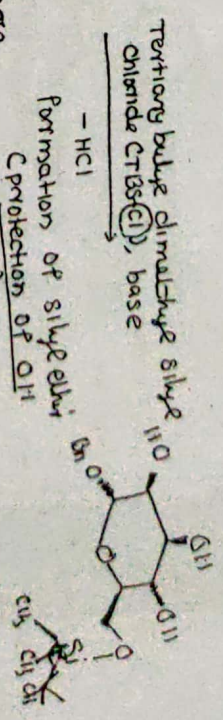 Tertiary butyl dimethyl silyl
chloride (TBS(Cl)), base
- HCl
Formation of silyl ether
(protection of OH
HO
OH
OH
Bn O
O
O
Si
CH3
CH3